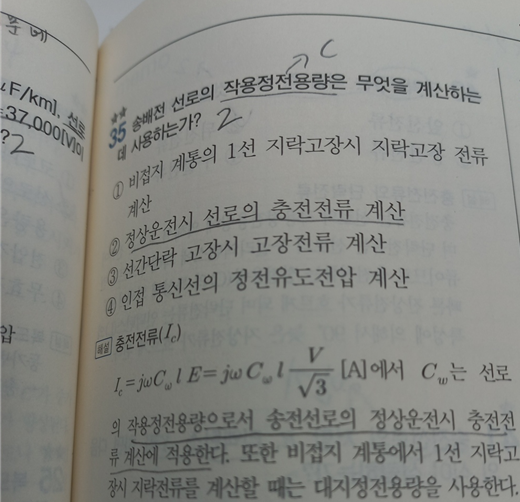 주네
μF/km], 선로
37,000[V]이
? 2
C
★★
35 송배전 선로의 작용정전용량은 무엇을 계산하는
데 사용하는가? 2
① 비접지 계통의 1선 지락고장시 지락고장 전류
계산
② 정상운전시 선로의 충전전류 계산
③ 선간단락 고장시 고장전류 계산
④ 인접 통신선의 정전유도전압 계산
압
해설 충전전류(I_c)
I_c = jωC_ω l E = jωC_ω l V/√3 [A]에서 C_w는 선로
의 작용정전용량으로서 송전선로의 정상운전시 충전전
류 계산에 적용한다. 또한 비접지 계통에서 1선 지락고
장시 지락전류를 계산할 때는 대지정전용량을 사용한다.